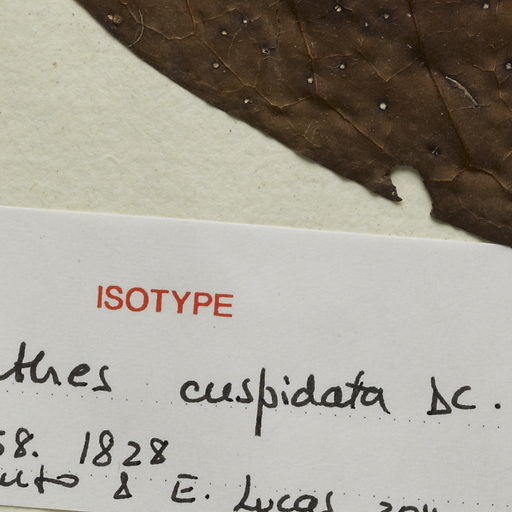 ISOTYPE
thes cuspidata DC.
58. 1828
& E. Lucas